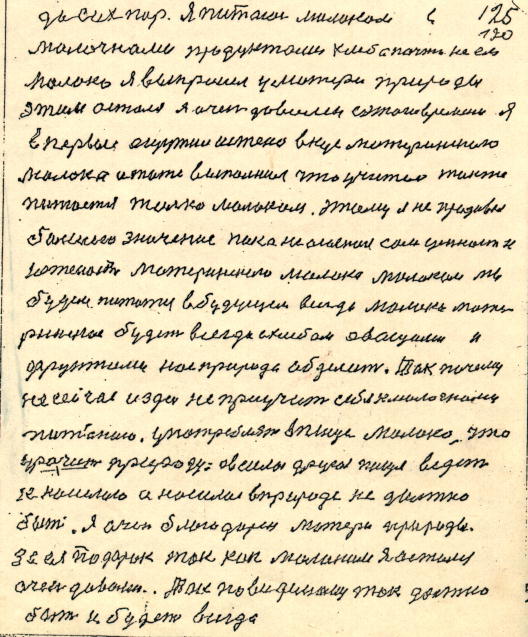 до сих пор. Я питаюс молоком и 125
молочнами продуктами хлеба почти не ем 120
молоко я выпросил у матери природы
этим остался я очен доволен с этого времени я
в первые ощутил истено вкус материнского
молока а то те выполнил что учител тоже
питается толко молоком. Этому я не продавал
болшого значение пока не оценил сам ценност и
материнского молока молоком мы
будем питатся в будущем везде молоко мате
ринское будет везде а хлебом овощами и
фруктами нас природа обделит. Так почему
не сейчас изде не приучит себя к молочному
питанию. употреблят в пищу молоко что
природу: овсем другая пища ведет
к насилию а насилия в природе не должно
быт. Я очен благодарен матери природы.
за ея подарок так как молоком я остался
очен доволен. Так по видемому так должно
быт и будет везде